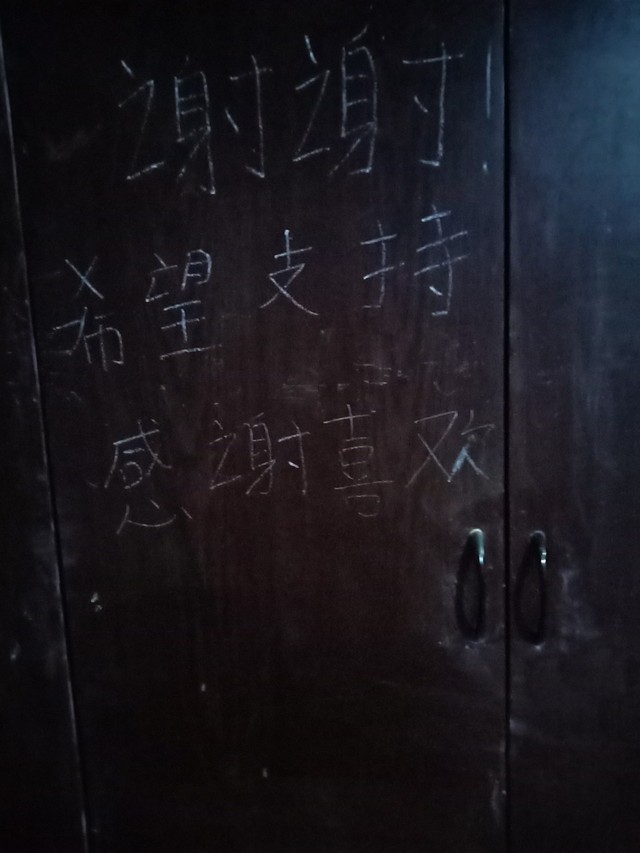 谢谢!
希望支持
感谢喜欢